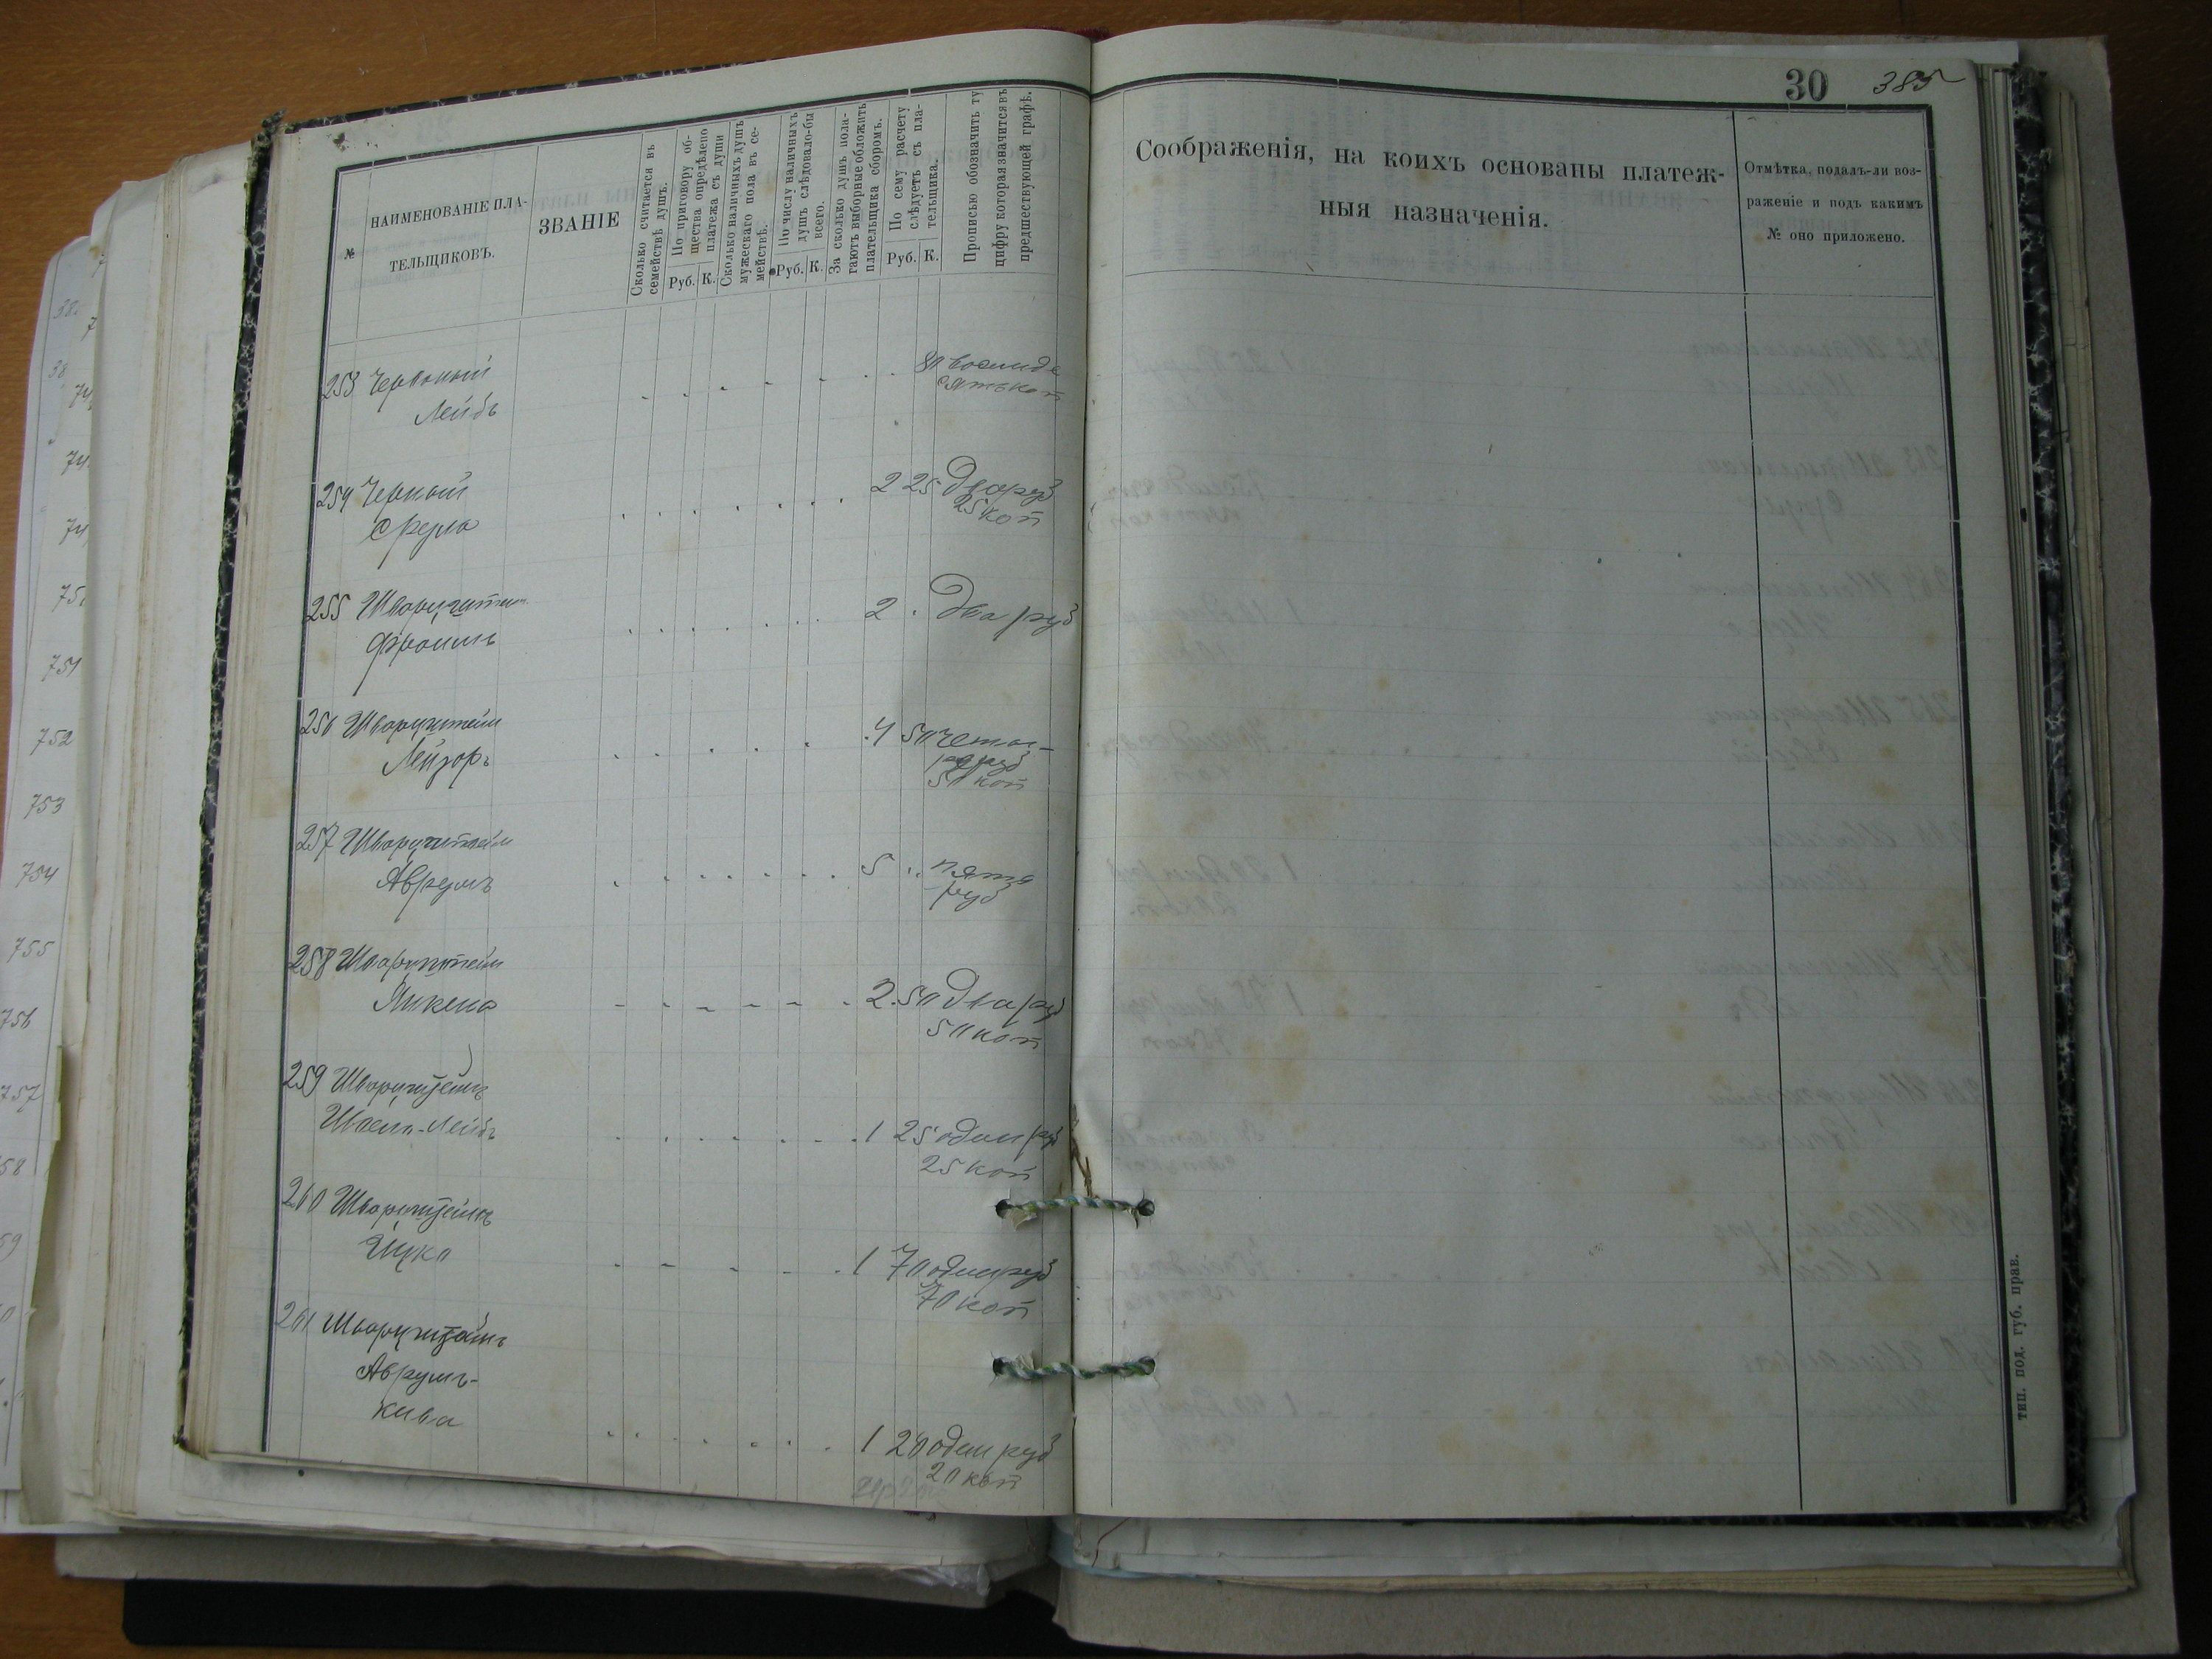 №
НАИМЕНОВАНІЕ ПЛА-
ТЕЛЬЩИКОВЪ.
ЗВАНІЕ
Сколько считается въ
семействѣ душъ.
По приговору об-
щества опредѣлено
платежа съ души
Руб. К.
Сколько наличныхъ душъ
мужескаго пола въ се-
мействѣ.
По числу наличныхъ
душъ слѣдовало-бы
всего.
Руб. К.
За сколько душъ пола-
гаютъ выборные обложить
плательщика сборомъ.
По сему расчету
слѣдуетъ съ пла-
тельщика.
Руб. К.
Прописью обозначить ту
цифру которая значится въ
предшествующей графѣ.
253 Червоный 80 восемьде
Лейбъ сятъ коп
254 Черный 2 25 два руб
Сруль 25 коп
255 Шварцштейн 2 два руб
Фроимъ
256 Шварцштейн 4 50 четы-
Лейзоръ ре руб
50 коп
257 Шварцштейн 5 пять
Аврумъ руб
258 Шварцштейн 2 50 два руб
50 коп
259 Шварцштейнъ
Лейбъ 1 25 один руб
25 коп
260 Шварцштейнъ
Ицко 1 70 один руб
70 коп
261 Шварцштейнъ
Аврумъ-
Кива
1 20 один руб
20 коп
30 385
Соображенія, на коихъ основаны платеж-
ныя назначенія.
Отмѣтка, подалъ-ли воз-
раженіе и подъ какимъ
№ оно приложено.
тип. под. губ. прав.
751
752
753
754
755
756
757